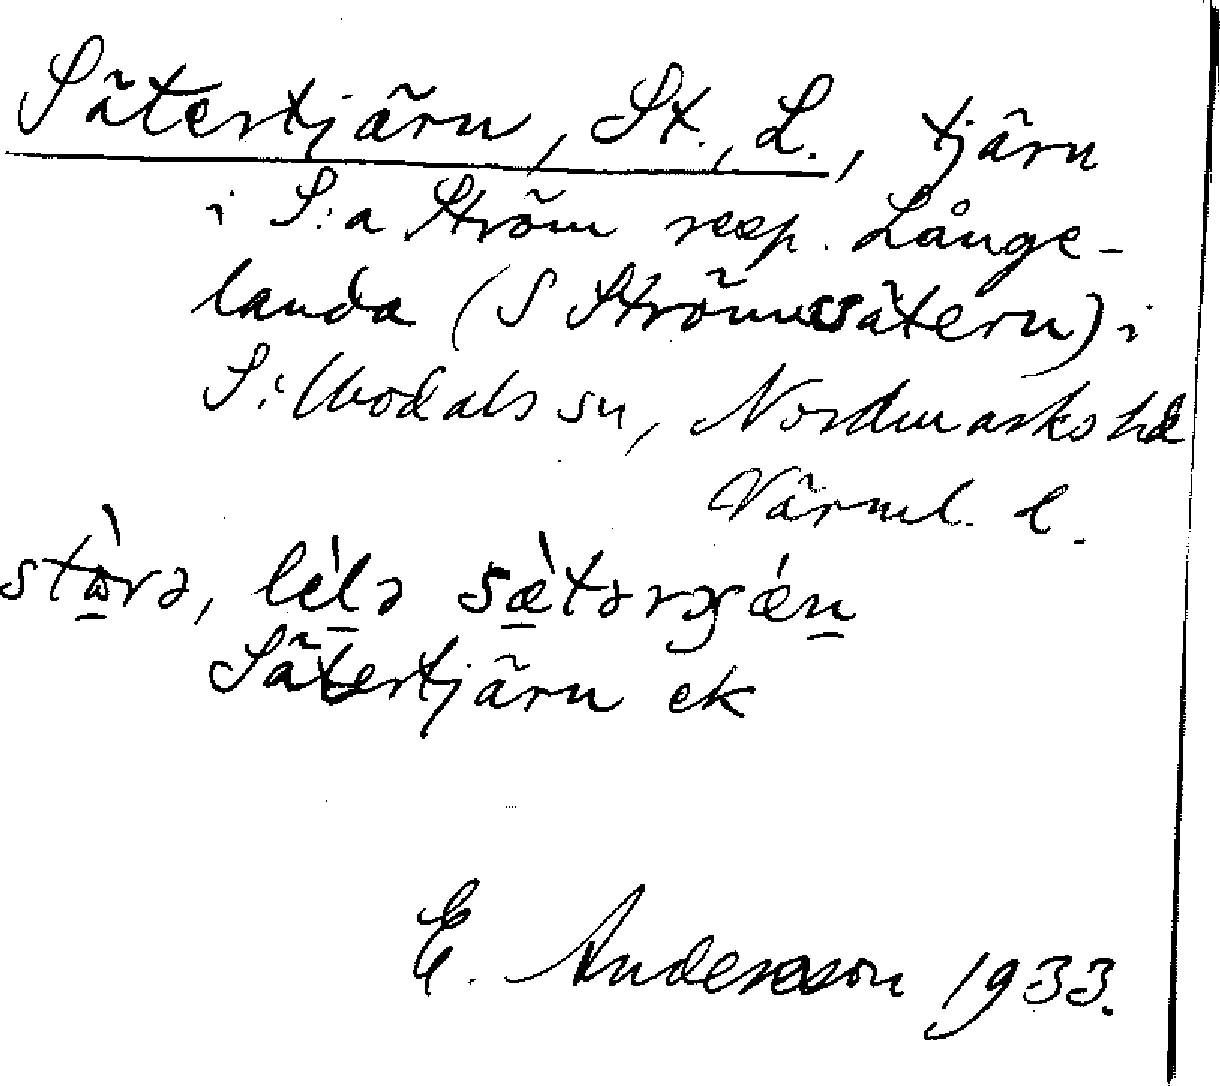 Sätertjärn, St., L., tjärn
i S:a Ström resp. Långe-
landa (S Strömssätern) i
Sillbodals sn, Nordmarks hd
Värml. l.
stɷ̀rə, lèlə sæ̀tərɟǽn
Sätertjärn ek
E. Andersson 1933.